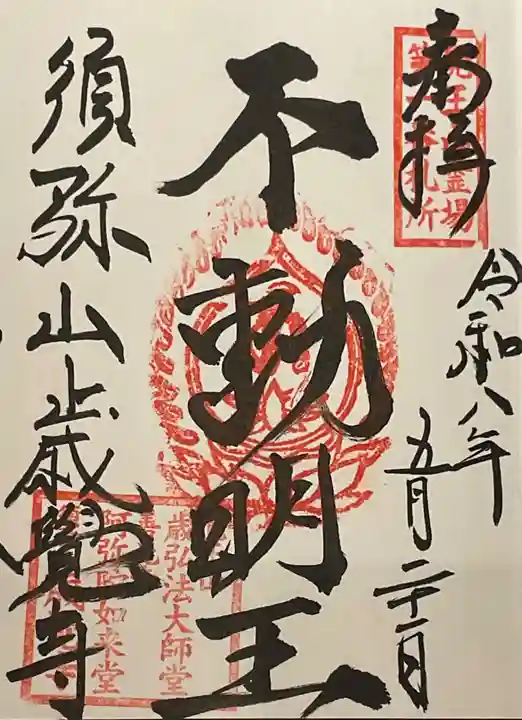 奉拝
霊場
札所
令和八年
五月二十一日
不動明王
須弥山歳覺寺
歳弘法大師堂
阿弥陀如来堂